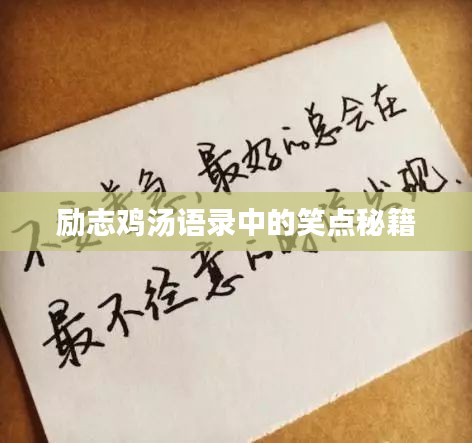 不要着急,最好的总会在
励志鸡汤语录中的笑点秘籍
最不经意的时候出现.